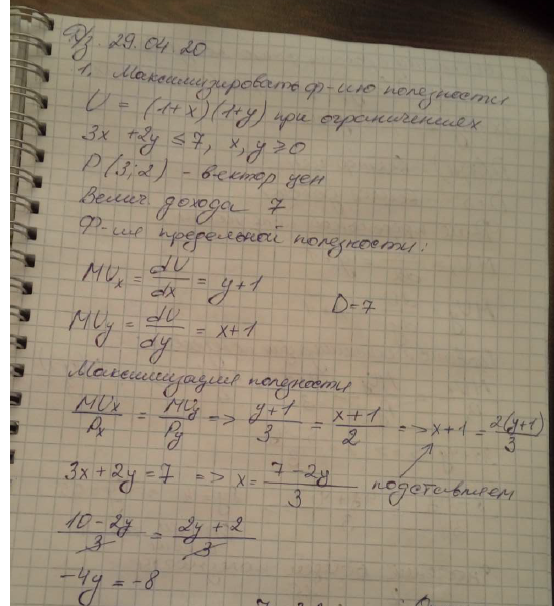 Д/з 29.04.20
1. Максимизировать ф-ию полезности
U = (1+x)(1+y) при ограничениях
3x + 2y ≤ 7, x, y ≥ 0
P(3;2) - вектор цен
Велич дохода 7
Ф-ия предельной полезности:
MUx = dU/dx = y+1
D=7
MUy = dU/dy = x+1
Максимизация полезности
MUx/Px = MUy/Py => y+1/3 = x+1/2 => x+1 = 2(y+1)/3
3x + 2y = 7 => x = 7-2y/3 подставляем
10-2y/3 = 2y+2/3
-4y = -8